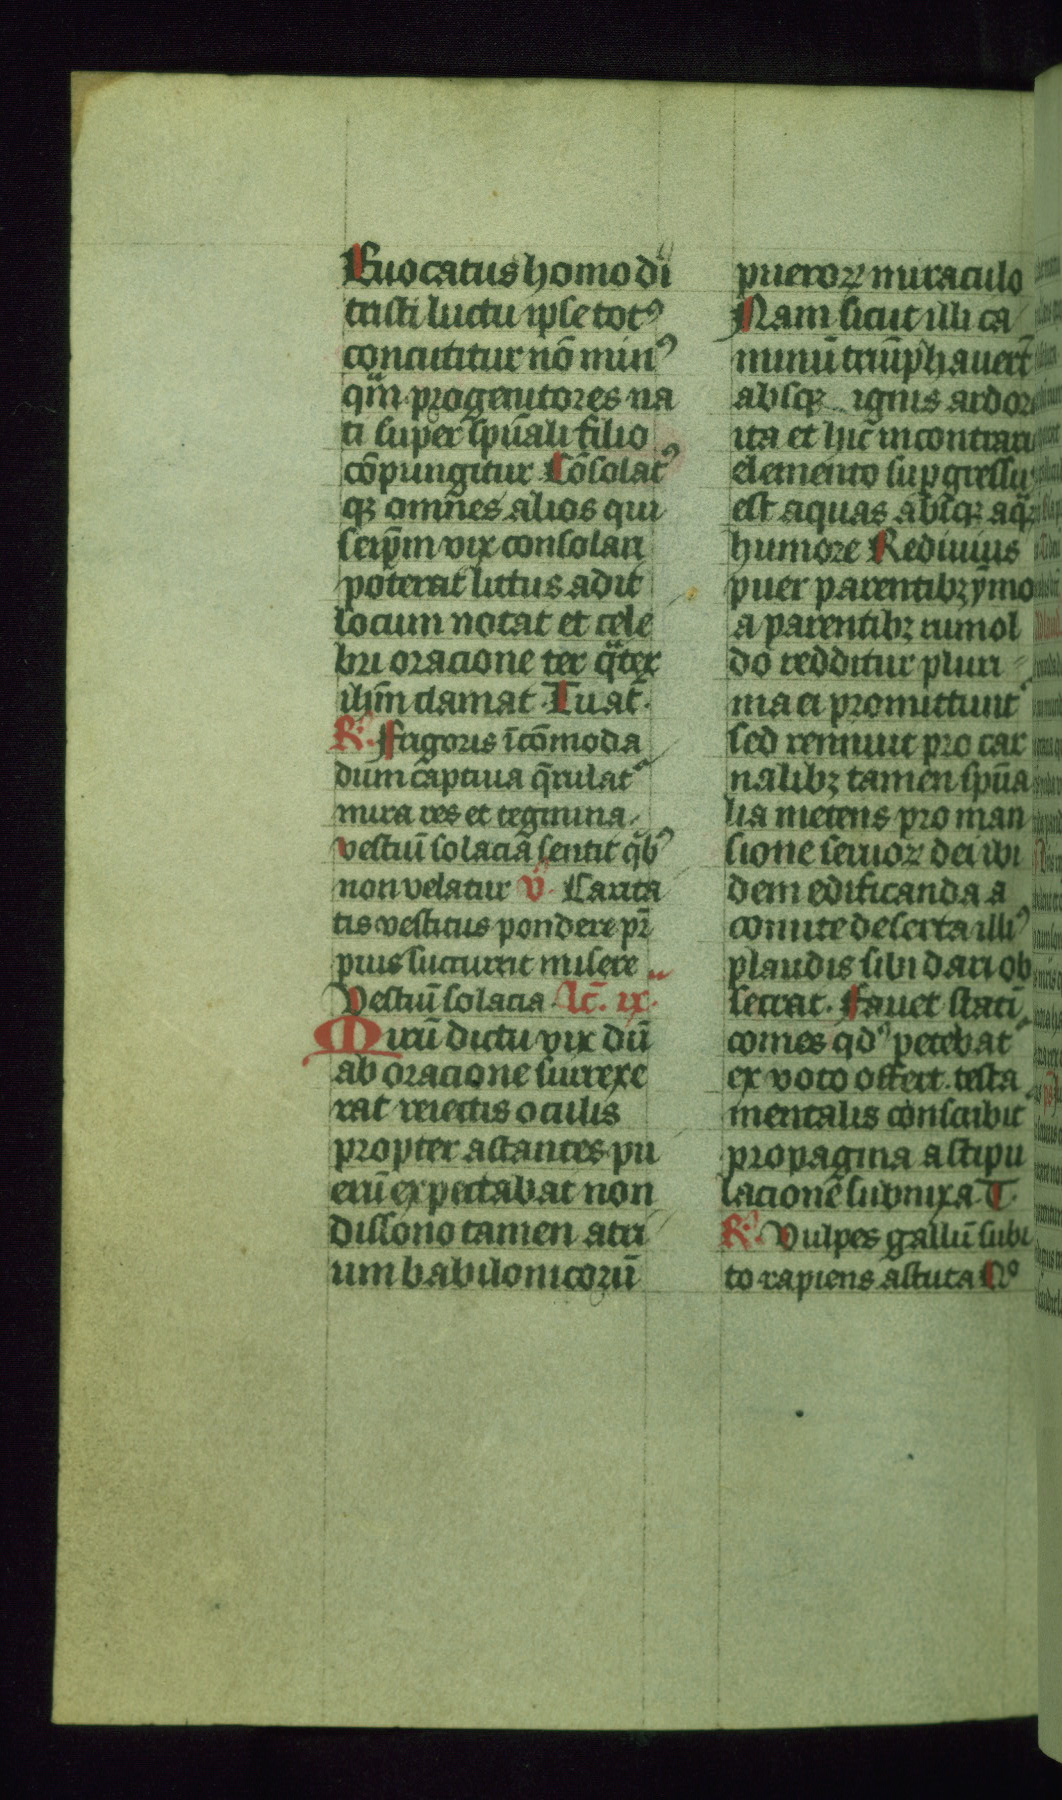 Euocatus homo di
tristi luctu ipse totꝰ
concutitur nō minꝰ
qm̄ progenitores na
ti super spūali filio
cōpungitur Cōsolatꝰ
qꝫ omnes alios qui
seip̄m vix consolari
poterat littus adit
locum notat et cele
bri oracione ter qͣterꝫ
ihm̄ clamat. Tu at̄.
R̷. Frigoris īcōmoda
dum captiua q̄rulat᷑
mira res et tegmina
vestiū solaciā sentit qͥbꝰ
non velatur v̄. Carita
tis vestitus pondere pr̄
pius succurrit misere
Vestiū solacia. lc̄. ix.
Mirū dictu vix dū
ab oracione surrexe
rat reiectis oculis
propter astantes pu
erū expectabat non
dissono tamen a tri
um babilonicorū
pueroꝝ miraculo
Nam sicut illi ca
minū triūphauerūt
absqꝫ ignis ardore
ita et hic̄ in contrari
elemento supgressus
est aquas absqꝫ aqͣꝝ
humore Rediuius
puer parentibꝫ ymo
a parentibꝫ
redditur pluri
ma ei promittunt᷑
sed rennuit pro car
nalibꝫ tamen spūa
lia metens pro man
sione seruoꝝ dei ibi
dem edificanda a
comite deserta illiꝰ
plaudis sibi dari ob
secrat. Fauet statī
comes qd̓ petebat᷑
ex voto offert. testa
mentalis conscribit᷑
propagina astipu
lacione subnixa T.
R̷. Vulpes gallū subi
to rapiens astuta No